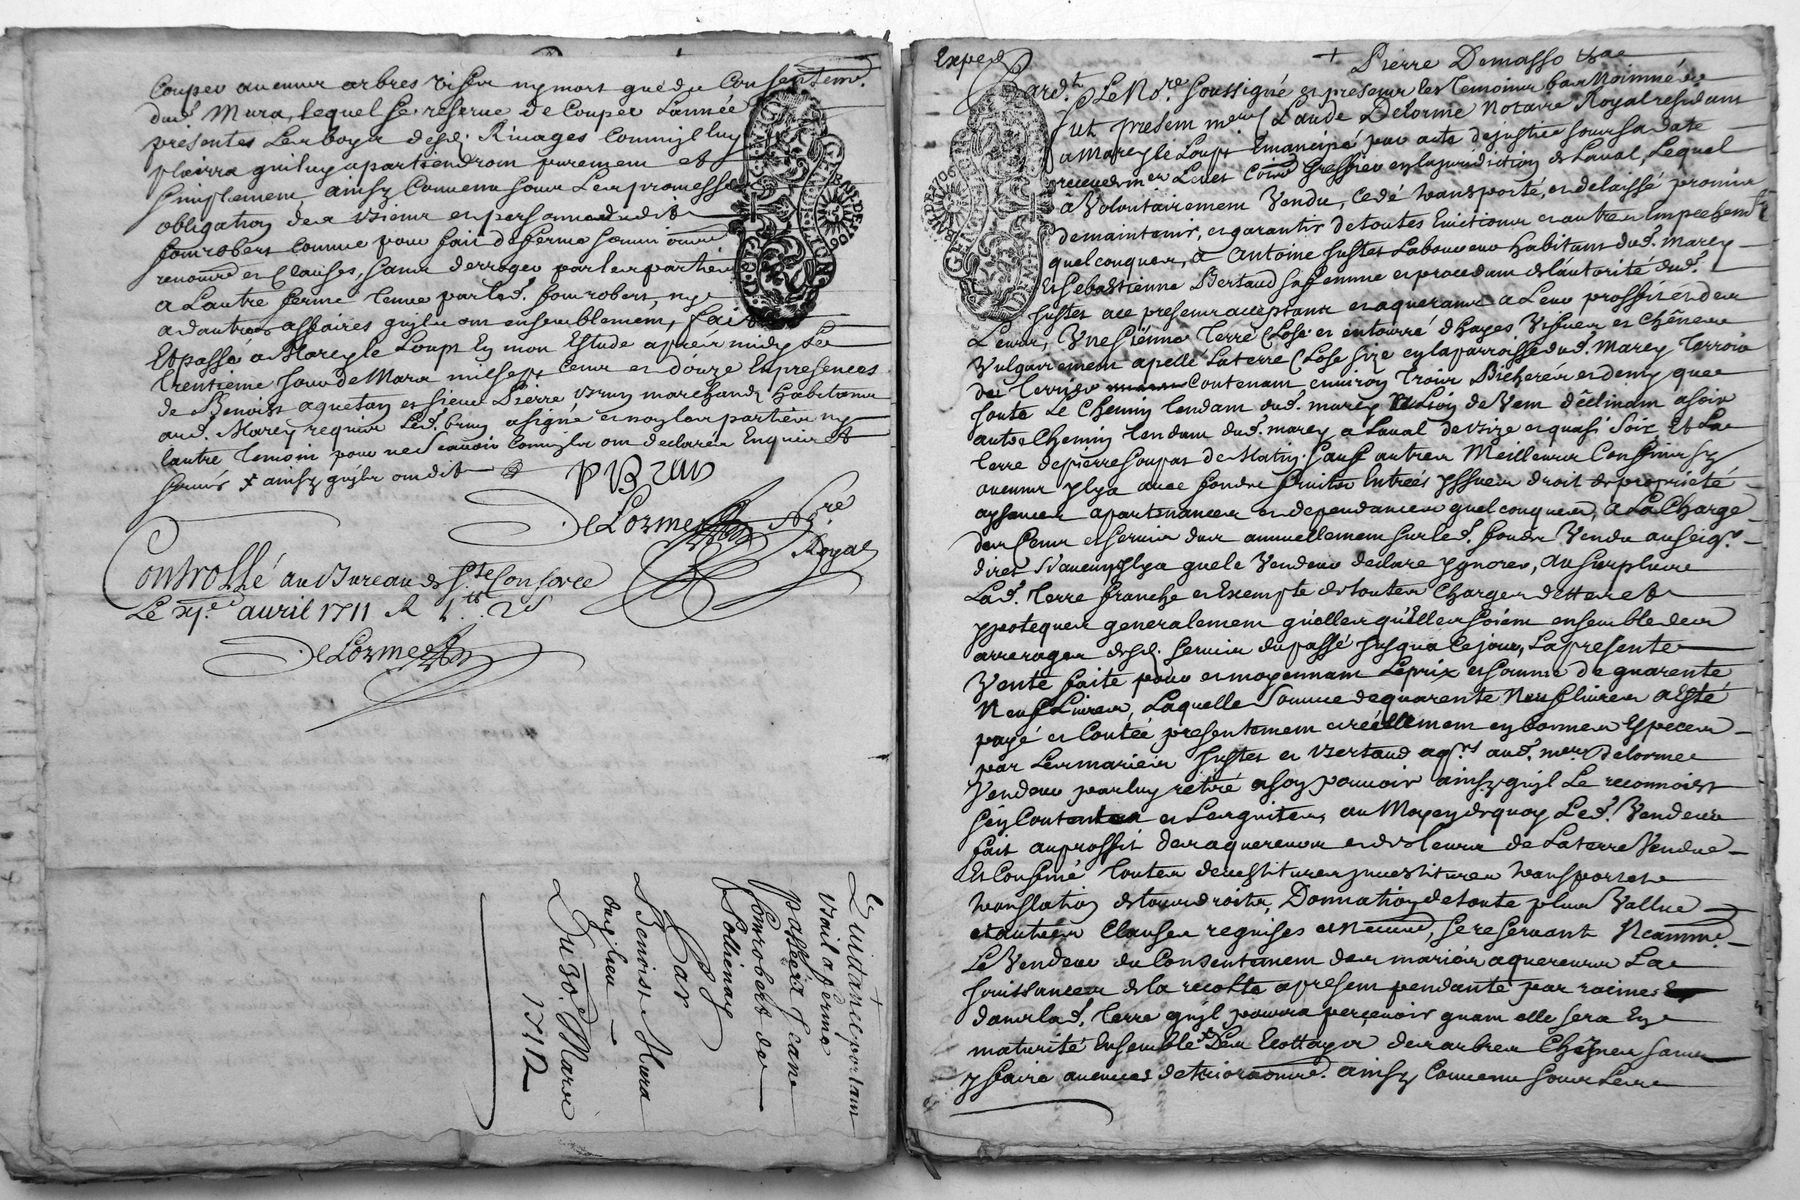 Couper aucuns arbres vif ny mort que du Consentemt.
dud. Mura, lequel se reserve de Couper l'année
presentes Les boys desd. Rivages Comm'il luy
plairra qui luy apartiendront purement et
simplement, ainsy Convenu sous Les promesses
obligation des biens et personne dudit
fontrobert comme pour fait de ferme soumissions
renonce et Clauses, sans deroger par les parties
a Lautre ferme tenue par led. fontrobert, ny
a d'autres affaires quyls ont ensemblement, fait
Et passé a Marcy le Loup En mon Estude apres midy Le
trentieme jour de Mars mil sept Cent et douze En presences
de Benoist aquetan et sieur Pierre brun marchand habitans
aud. Marcy requis Led. brun a signé et non les parties ny
lautre temoin pour ne scavoir comm'yls ont declarés Enquis et
sommés ainsy quyls ont dit
P Brun
DeLorme Nre
Royal
Controllé au Bureau de Ste Consorce
Le xje avril 1711 R 1tt 2s
DeLorme
30e Mars
1712
Quittance portant
bail a ferme
passée a Jeane
Fontrobert de
Pollionay
Par
Benoist Mura
dud. lieu
Exped
+ Pierre Demasso
Pardt Le Nore soussigné et presens les temoins bas Nommés
fut present mere Claude Delorme Notaire Royal residant
a Marcy le Loup Emancipé par acte de justice sous sa date
receu et Greffier en la jurisdiction de Laval, Lequel
a Volontairement Vendu, Cedé transporté, et delaissé promis
de maintenir, et garantir de toutes Evictions et autres Empechemts
quelconques, a Antoine justet Laboureur habitant dud. Marcy
Et Sebastienne Bertaud sa femme et procedant de l'autorité dud.
justet ace present acceptant et aquerans a Leur proffit et des
Leurs, Une sienne Terre Close et entouré d'hayes Vifves et Chênes
Vulgairement apellé La terre Close size en la parroisse dud. Marcy Terroir
de Contenant environ trois Bicherées et demy que
joute Le Chemin tendant dud. marcy a Lion de Vent déclinant a soir
autre Chemin tendant dud. marcy a Laval de bize et quasi soir Et La
terre de pierre soupat de Matin, sauf autres Meilleurs Confins sy
aucuns ylya avec fonds fruits Entrées yssues droit de proprieté
aysances apartenances et dependances quelconques, a La Charge
des Cens et servis dus annuellement sur led. fonds Vendu au seigr.
direct sy aucun ylya que le Vendeur declare ygnorer, du surplus
Lad. terre franche et Exempte de toutes Charges dettes et
ypoteques generalement quelles qu'elles soient ensemble des
arrerages desd. servis du passé jusqua ce jour, La presente
Vente faite pour et moyennant Le prix et somme de quarente
Neuf Livres, Laquelle somme de quarente Neuf livres a Esté
payé et Contée presentement et réellement en bonnes Especes
par Les mariés justet et bertaud aqrs aud. mere Delorme
Vendeur par luy retiré a son pouvoir ainsy quyl Le reconnoist
s'en Contente et Les quitte, au Moyen de quoy Led. Vendeur
fait au proffit des aquereurs et des leurs de La terre Vendue
Et Confiné toutes devestitures investitures transport et
translation de tous droits, Donnation de toute plus Vallue
et autres Clauses requises et Necess., se reservant Neanms.
Le Vendeur du Consentement des mariés aquereurs La
jouissance de la recolte a present pendante par racines
dans lad. terre quyl pourra perçevoir quant elle sera En
maturité Ensemble Les Ecottages des arbres Chênes sans
y faire aucunes deteriorations. ainsy Convenu sous Les